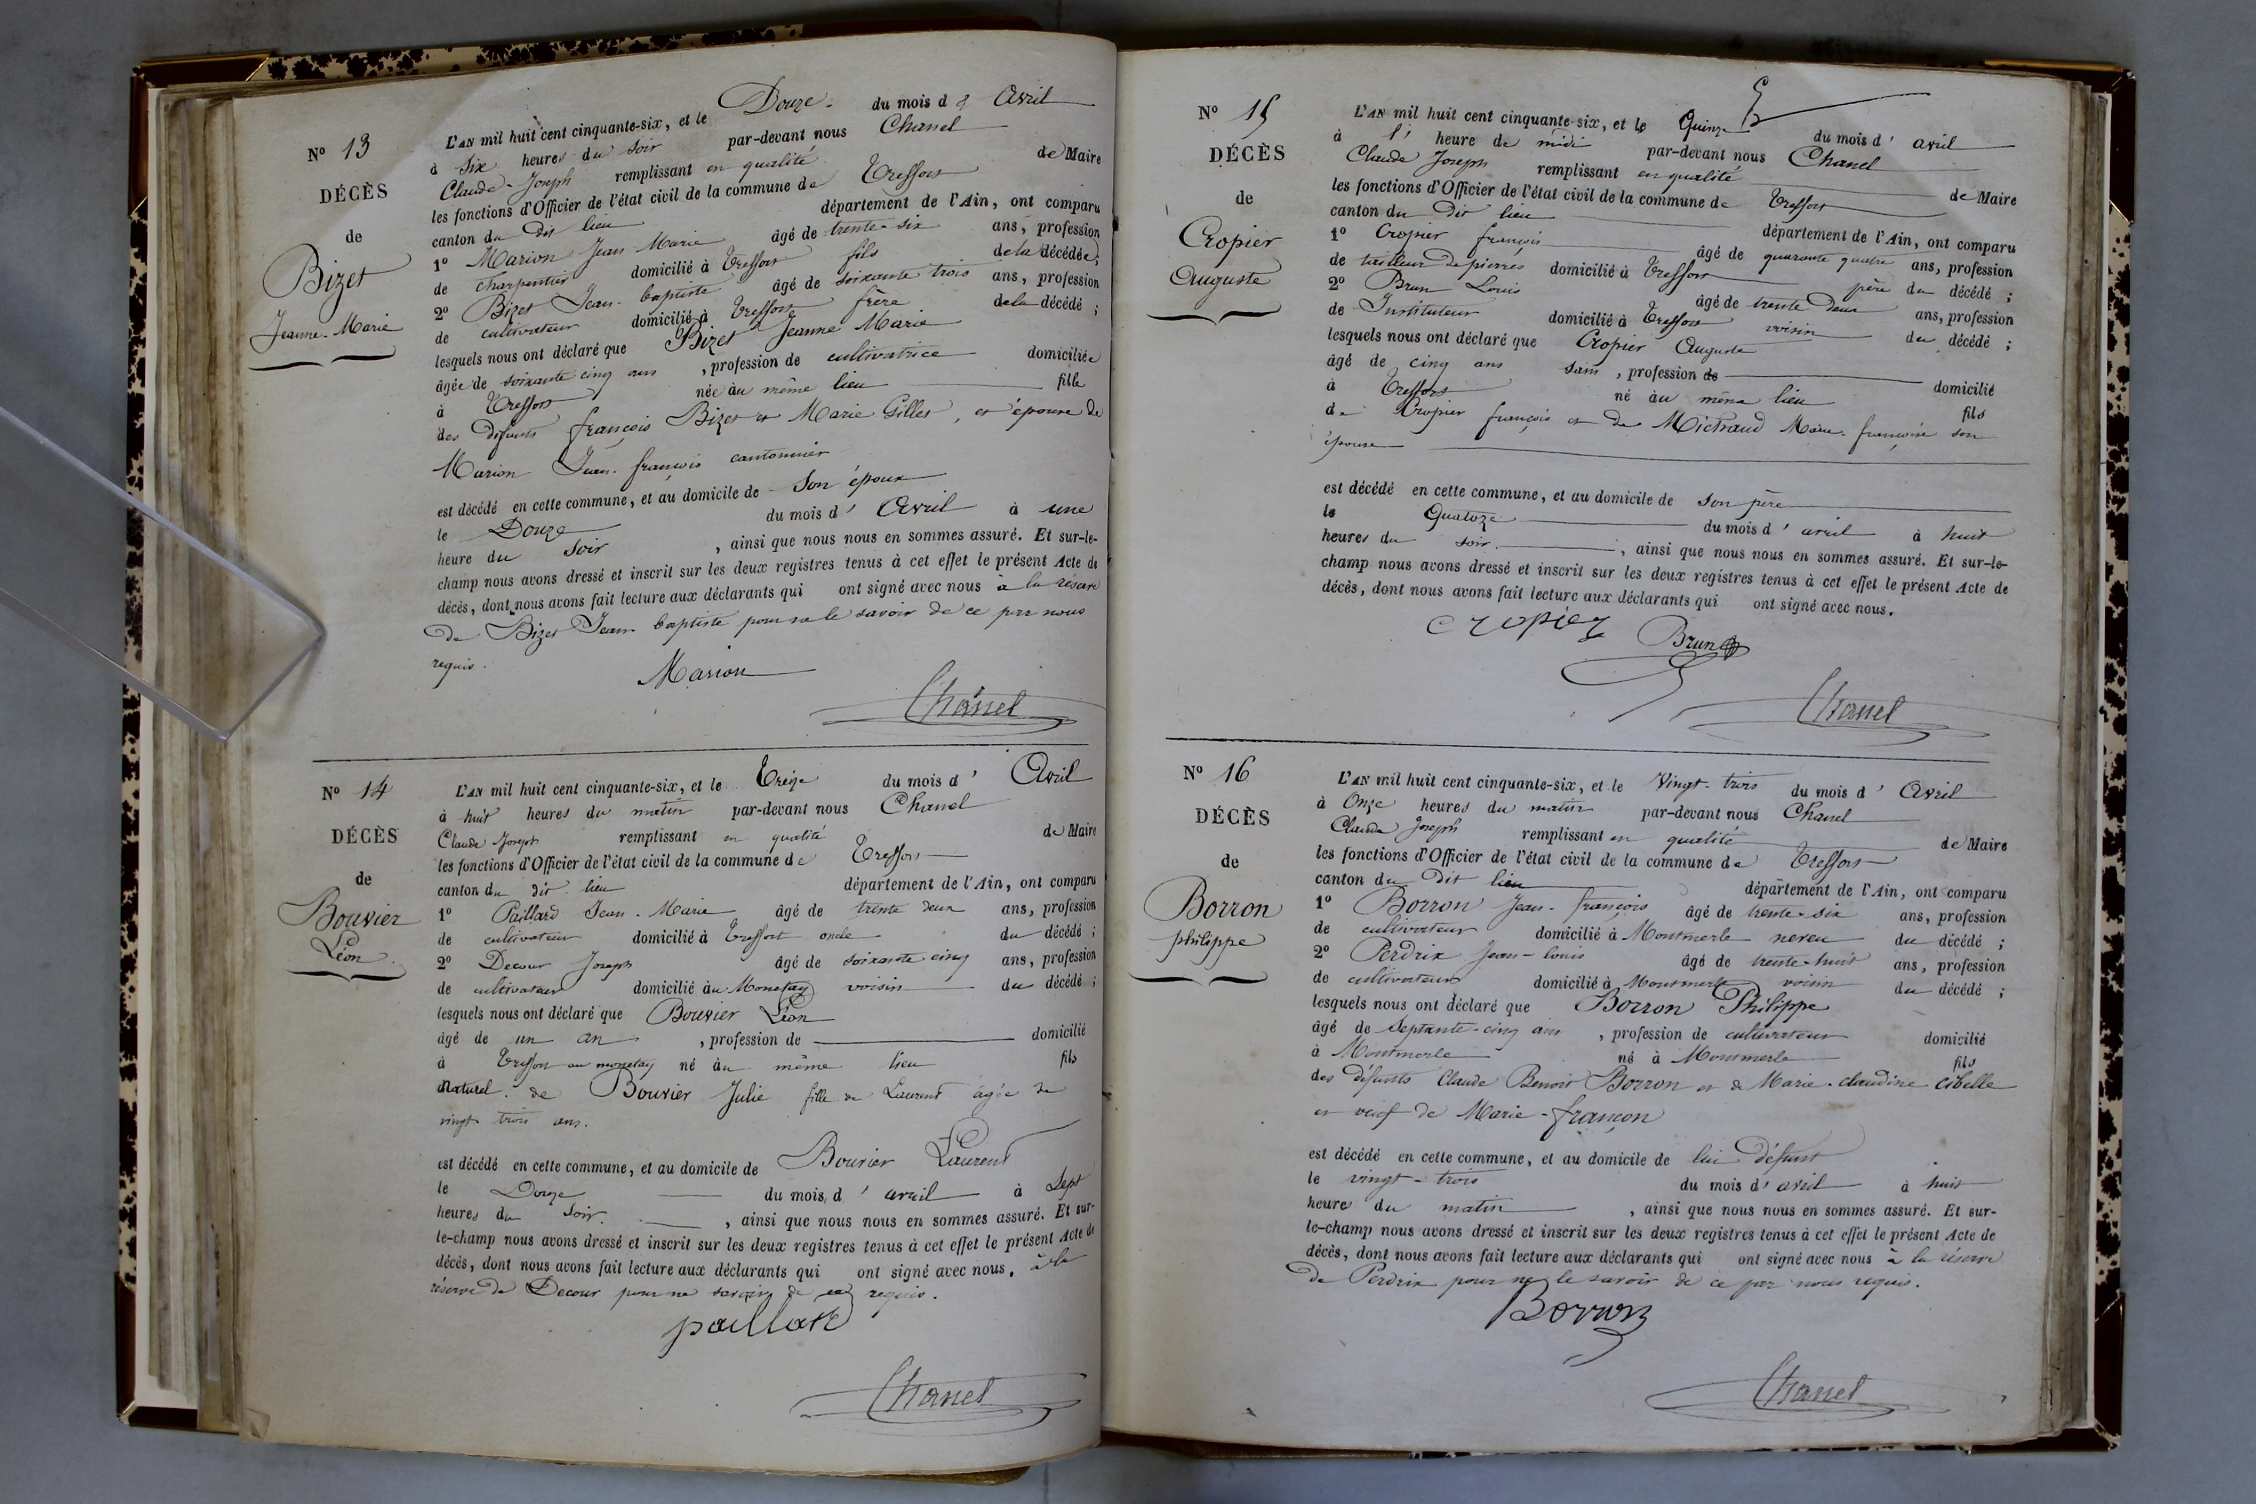 N° 13
DÉCÈS
de
Bizet
Jeanne-Marie
L'AN mil huit cent cinquante-six, et le Douze du mois d' Avril
à six heures du soir par-devant nous Chanel
Claude-Joseph remplissant en qualité de Maire
les fonctions d'Officier de l'état civil de la commune de Treffort
canton du dit lieu département de l'Ain, ont comparu
1° Marion Jean Marie âgé de trente-six ans, profession
de charpentier domicilié à Treffort fils de la décédée;
2° Bizet Jean-baptiste âgé de soixante trois ans, profession
de cultivateur domicilié à Treffort frère de la décédé;
lesquels nous ont déclaré que Bizet Jeanne Marie
âgée de soixante cinq ans, profession de cultivatrice domiciliée
à Treffort née au même lieu fille
des défunts françois Bizet et Marie Gilles, et épouse de
Marion Jean-françois cantonnier
est décédé en cette commune, et au domicile de son époux
le Douze du mois d' Avril à une
heure du soir, ainsi que nous nous en sommes assuré. Et sur-le-
champ nous avons dressé et inscrit sur les deux registres tenus à cet effet le présent Acte de
décès, dont nous avons fait lecture aux déclarants qui ont signé avec nous à la réserve
de Bizet Jean-baptiste pour ne le savoir de ce par nous
requis.
Marion
Chanel
N° 14
DÉCÈS
de
Bouvier
Léon
L'AN mil huit cent cinquante-six, et le Treize du mois d' Avril
à huit heures du matin par-devant nous Chanel
Claude Joseph remplissant en qualité de Maire
les fonctions d'Officier de l'état civil de la commune de Treffort
canton du dit lieu département de l'Ain, ont comparu
1° Paillard Jean-Marie âgé de trente deux ans, profession
de cultivateur domicilié à Treffort oncle du décédé;
2° Decour Joseph âgé de soixante cinq ans, profession
de cultivateur domicilié au Monetay voisin du décédé;
lesquels nous ont déclaré que Bouvier Léon
âgé de un an, profession de domicilié
à Treffort au monetay né au même lieu fils
naturel de Bouvier Julie fille de Laurent âgée de
vingt trois ans.
est décédé en cette commune, et au domicile de Bouvier Laurent
le Douze du mois d' avril à sept
heures du soir, ainsi que nous nous en sommes assuré. Et sur-
le-champ nous avons dressé et inscrit sur les deux registres tenus à cet effet le présent Acte de
décès, dont nous avons fait lecture aux déclarants qui ont signé avec nous, à la
réserve de Decour pour ne savoir de ce requis.
paillard
Chanel
N° 15
DÉCÈS
de
Cropier
Auguste
L'AN mil huit cent cinquante-six, et le Quinze du mois d' avril
à 1' heure de midi par-devant nous Chanel
Claude Joseph remplissant en qualité de Maire
les fonctions d'Officier de l'état civil de la commune de Treffort
canton du Dit lieu département de l'Ain, ont comparu
1° Cropier françois âgé de quarante quatre ans, profession
de tailleur de pierres domicilié à Treffort père du décédé;
2° Brun Louis âgé de trente deux ans, profession
de Instituteur domicilié à Treffort voisin du décédé;
lesquels nous ont déclaré que Cropier Auguste
âgé de cinq ans sans, profession de domicilié
à Treffort né au même lieu fils
de Cropier françois et de Michaud Marie-françoise son
épouse
est décédé en cette commune, et au domicile de son père
le Quatorze du mois d' avril à huit
heures du soir, ainsi que nous nous en sommes assuré. Et sur-le-
champ nous avons dressé et inscrit sur les deux registres tenus à cet effet le présent Acte de
décès, dont nous avons fait lecture aux déclarants qui ont signé avec nous.
cropier Brun
Chanel
N° 16
DÉCÈS
de
Borron
philippe
L'AN mil huit cent cinquante-six, et le Vingt-trois du mois d' Avril
à Onze heures du matin par-devant nous Chanel
Claude Joseph remplissant en qualité de Maire
les fonctions d'Officier de l'état civil de la commune de Treffort
canton du Dit lieu département de l'Ain, ont comparu
1° Borron Jean-françois âgé de trente-six ans, profession
de cultivateur domicilié à Montmerle neveu du décédé;
2° Perdrix Jean-louis âgé de trente-huit ans, profession
de cultivateur domicilié à Montmerle voisin du décédé;
lesquels nous ont déclaré que Borron Philippe
âgé de Septante-cinq ans, profession de cultivateur domicilié
à Montmerle né à Montmerle fils
des défunts Claude Benoit Borron et de Marie-claudine cibelle
et veuf de Marie-françon
est décédé en cette commune, et au domicile de lui défunt
le vingt-trois du mois d' avril à huit
heure du matin, ainsi que nous nous en sommes assuré. Et sur-
le-champ nous avons dressé et inscrit sur les deux registres tenus à cet effet le présent Acte de
décès, dont nous avons fait lecture aux déclarants qui ont signé avec nous à la réserve
de Perdrix pour ne le savoir de ce par nous requis.
Borron
Chanel